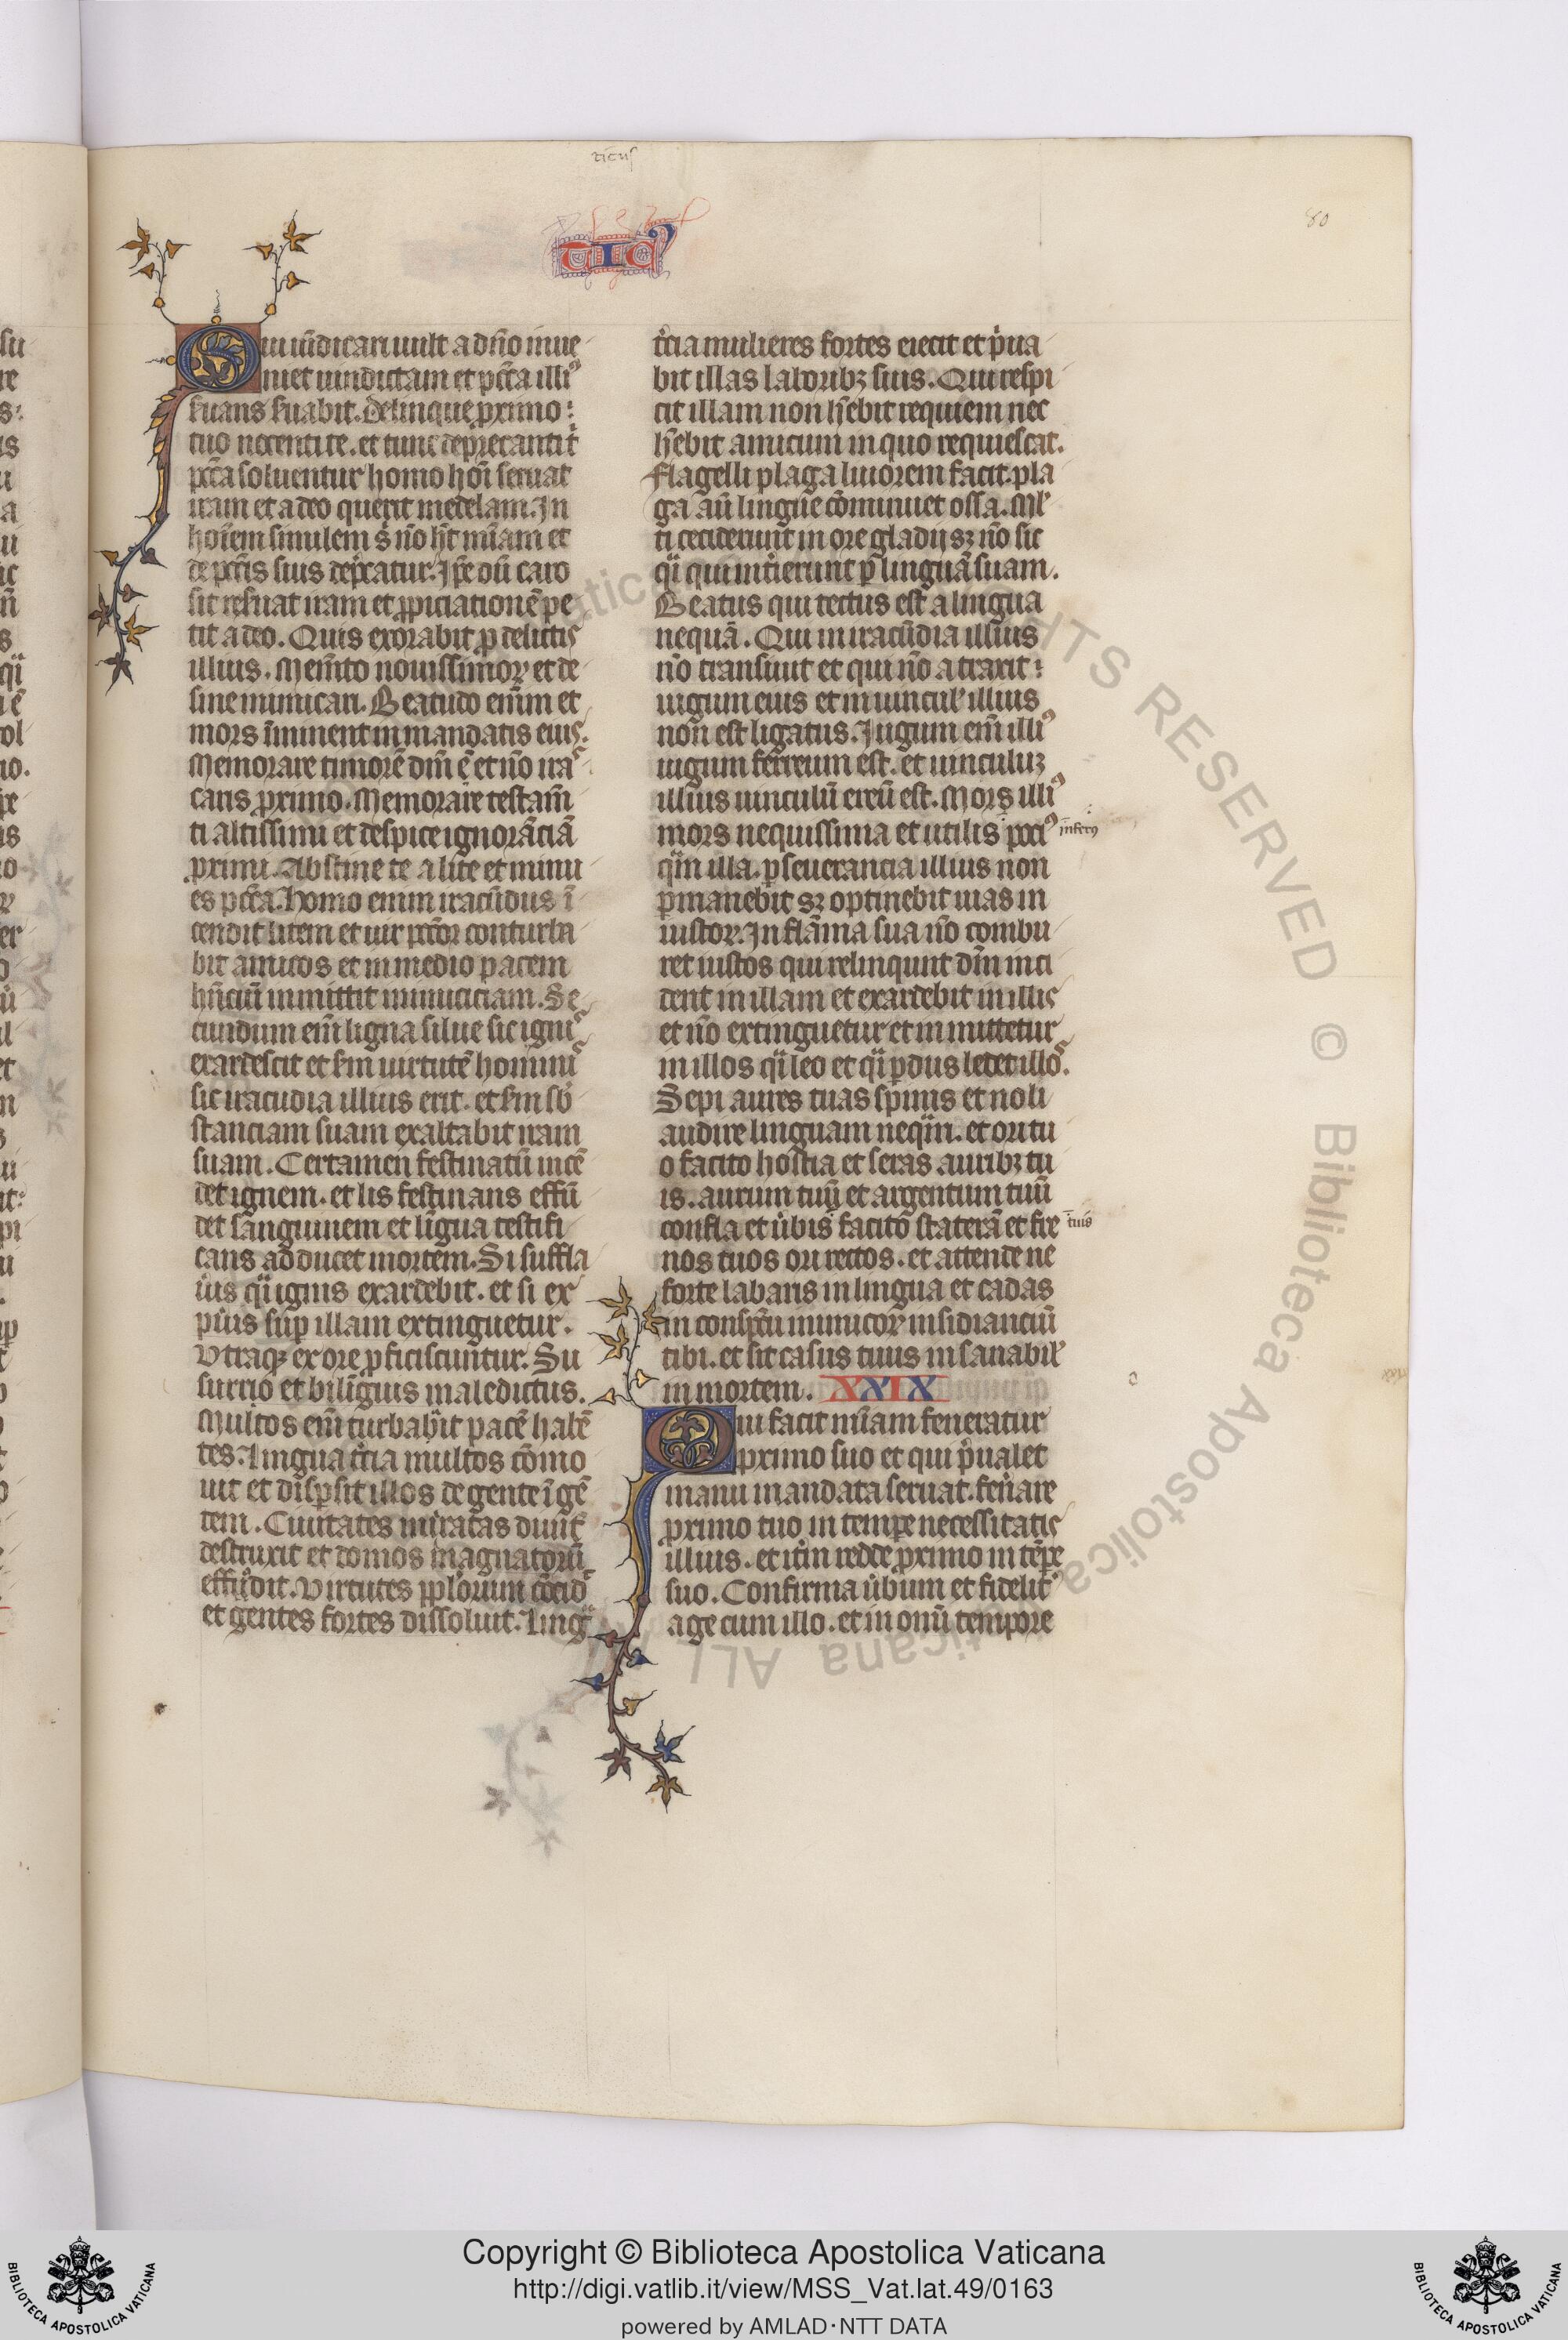 ticus
TIC9
80
Qui uīdicari uult a dn̄o inue
niet uindictam et pctā illi9
ẜuans ẜuabit. Relinque ꝓximo
tuo nocenti te. et tunc dep̄recanti t̄
pctā soluentur homo hoī seruat
iram et a deo querit medelam. In
hoīem similem s n̄o ht̄ mīam et
de pctīs suis dep̄catur. Ip̄e dū caro
sit reẜuat iram et ꝓpiciationē pe
tit a deo. Quis exorabit ꝓ delictis
illius. Mem̄to nouissimoꝝ et de
sine inimicari. Beatudo enīm et
mors īminent in mandatis eius.
Memorare timorē dm̄ ē et n̄o ira
caris ꝓximo. Memorare testam̄
ti altissimi et despice ignorāciā
ꝓximi. Abstine te a lite et minu
es pctā. Homo enim iracūdus ī
cendit litem et uir pctōr conturba
bit amicos et in medio pacem
hn̄ciū inmittit inimiciciam. Se
cundum em̄ ligna silue sic ignis
exardescit et scdm uirtutē hominis
sic iracūdia illius erit. et scdm sb
stanciam suam exaltabit iram
suam. Certamen festinatū incē
det ignem. et lis festinans effū
det sanguinem et līgua testifi
cans adducet mortem. Si suffla
u̾is qͣi ignis exardebit. et si ex
pu̾is sup̄ illam extinguetur.
Vtraqꝫ ex ore ꝓficiscuntur. Su
surrio et bilīguis maledictus.
Multos em̄ turbabit pacē habē
tes. Lingua tc̄ia multos cōmo
uit et disꝑsit illos de gente ī gē
tem. Ciuitates muratas diuit
destruxit et domos magnatorū
effudit. Virtutes ppl̄orum cōcid
et gentes fortes dissoluit. Lingͣ
tc̄ia mulieres fortes eiecit et p̄ua
bit illas laboribꝫ suis. Qui respi
cit illam non hēbit requiem nec
hēbit amicum in quo requiescat.
Flagelli plaga liuorem facit. pla
ga aū lingue cōminuet ossa. Ml
ti ceciderunt in ore gladij sꝫ n̄o sic
qͣi qui int̄ierunt ꝑ linguā suam.
Beatus qui tectus est a lingua
nequā. Qui in iracūdia illius
n̄o transiuit et qui n̄o atraxit
iugum eius et in uincul illius
non est ligatus. Jugum em̄ illi9
iugum ferreum est. et uinculuꝫ
illius uinculū ereū est. Mors illi9
mors nequissima et utilis poci9 inferus
qͣm illa. ꝑseuerancia illius non
ꝑmanebit sꝫ optinebit uias in
iustoꝝ. In flāma sua n̄o combu
ret iustos qui relinqunt dm̄ inci
dent in illam et exardebit in illis
et n̄o extinguetur et inmittetur
in illos qͣi leo et qͣi ꝑdus ledet illos.
Sepi aures tuas spinis et noli
audire linguam neqͣm. et ori tu
o facito hostia et seras auribꝫ tu
is. aurum tuū et argentum tuū
confla et u̾bis facito staterā et fre tuis
nos tuos ori rectos. et attende ne
forte labaris in lingua et cadas
in conspc̄tu inimicoꝝ insidianciū
tibi. et sit casus tuus insanabil
in mortem. XXIX
Qui facit mīam feneratur
ꝓximo suo et qui p̄ualet
manu mandata seruat. fen̄are
ꝓximo tuo in tempe necessitatis
illius. et it̄m redde ꝓximo in tēpe
suo. Confirma u̾bum et fidelit̄
age cum illo. et in om̄i tempore
Copyright © Biblioteca Apostolica Vaticana
http://digi.vatlib.it/view/MSS_Vat.lat.49/0163
powered by AMLAD·NTT DATA